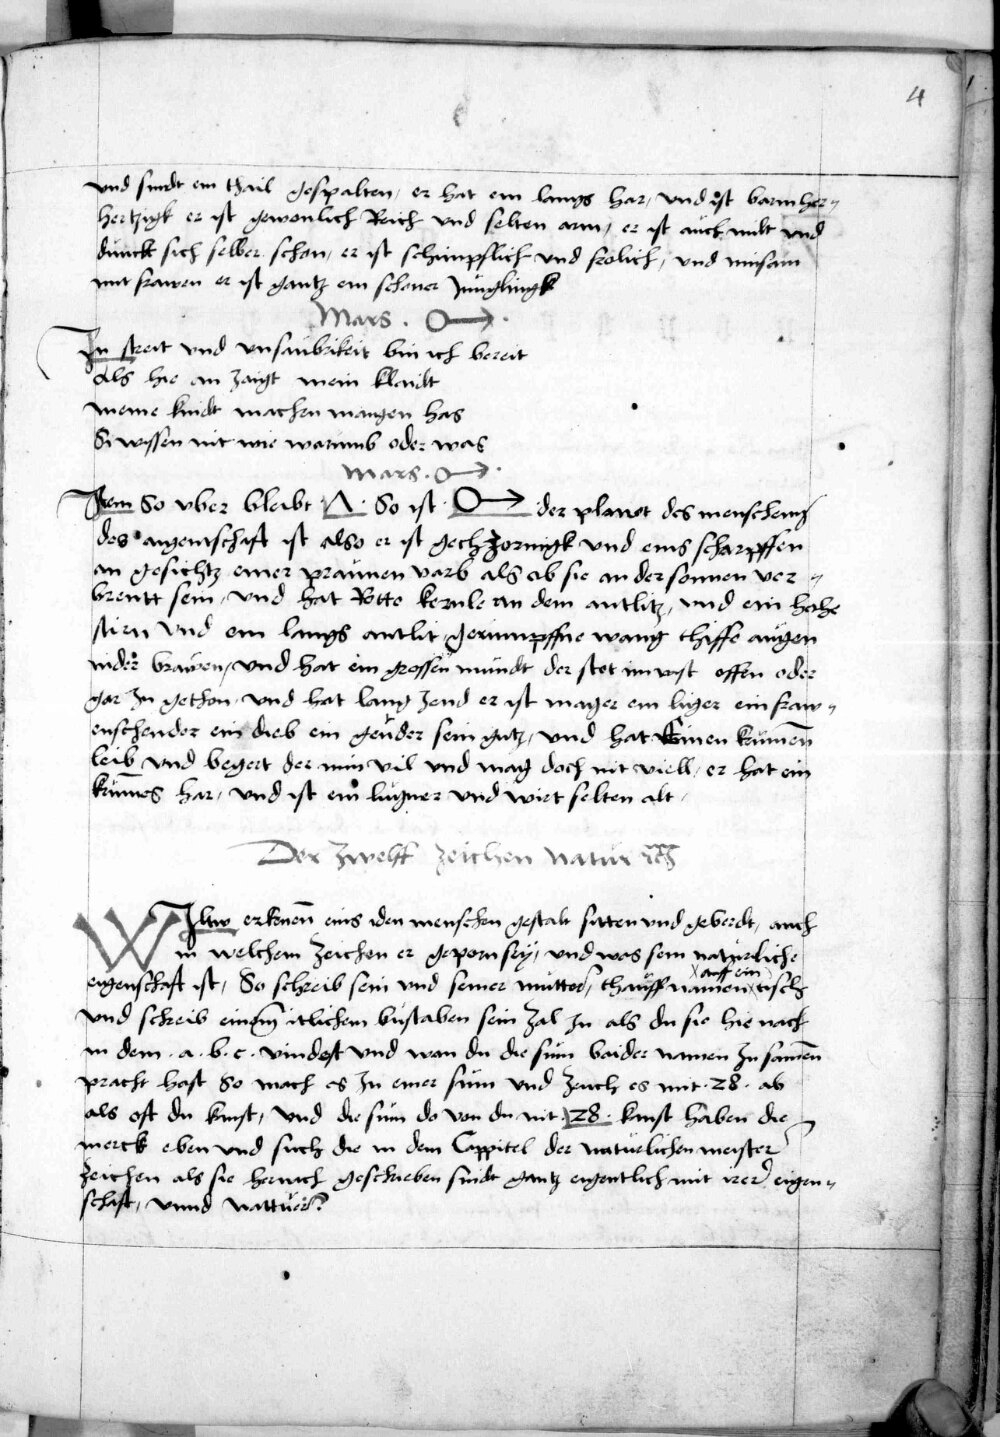 4
und sindt ein thail gespalten, er hat ein langs har, und ist barmher„
hertzigk er ist gewonlich Reich und selten arm, er ist auch milt und
dunck sich selber schon, er ist schimpflich und frolich, und minsam
mit frawen er ist gantz ein schoner Junglingk
Mars . ♂ .
In streit und unsaubrikeit bin ich bereit
Als hie an zaigt mein klaidt
meine kindt machen mangen has
Si wissen nit wie warumb oder was
Mars . ♂ .
Item So uber bleibt . Λ . So ist . ♂ der planet des menschenn
des aigenschaft ist also er ist gech zornigk und eins scharpffen
an gesichtz einer praunen varb als ob sie an der sonnen ver„
brentt sein, und hat Rotte kernle an dem antlitz, und ein hohe
stirn und ein langs antlit, gerumpffne wang thiffe augen
nider brawen, und hat ein grossen mundt der stet offen oder
gar zu gethon, und hat lang zend er ist mager ein liger ein fraw„
enschender ein dieb ein geuder sein gutz, und hat einen krumenn
leib und begert der min vil und mag doch nit viell, er hat ein
krumes har, und ist ein lugner und wirt selten alt,
Der zwelff zeichen natur
Wiltw erkenen eins iden menschen gestalt sitten und geberdt, auch
in welchem zeichen er geporn sey, und was sein naturliche
eigenschaft ist, So schreib sein und seiner mutter, thauff namen auff ein tisch
und schreib einem itlichem bustaben sein zal zu als du sie hie nach
in dem . a . b . c . vindest und wan du die sum baider namen zu samen
pracht hast So mach es zu einer sum und zeuch es mit . 28 . ab
als oft du kanst, und die sum do von du nit . 28 . kanst haben die
merck eben und such die in dem Cappitel der naturlichen meister
zeichen als sie hernach geschrieben sindt gantz eigentlich mit irer eigen„
schaft, unnd nattuer